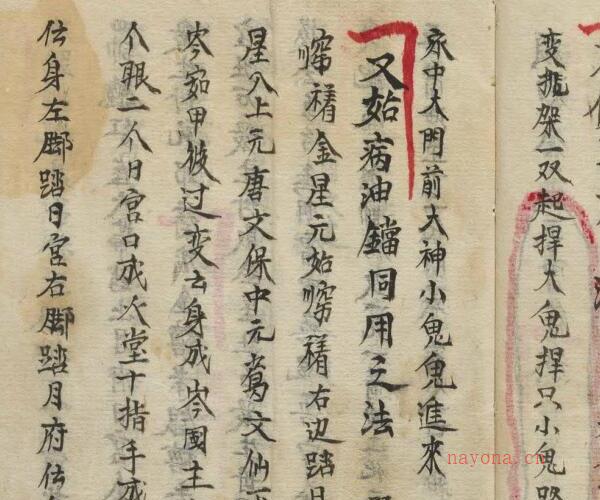 变掹架一双起捍大鬼捍只小鬼路
家中大門前大神小鬼鬼進來
又始病油鐺同用之法
金星元始 右边踏日
星入上元唐文保中元葛文仙
岑宕甲候过变云身成岑國土
个眼二个日宫口成人堂十指手成
仸身左脚踏日宫右脚踏月府仸
nayona.cn